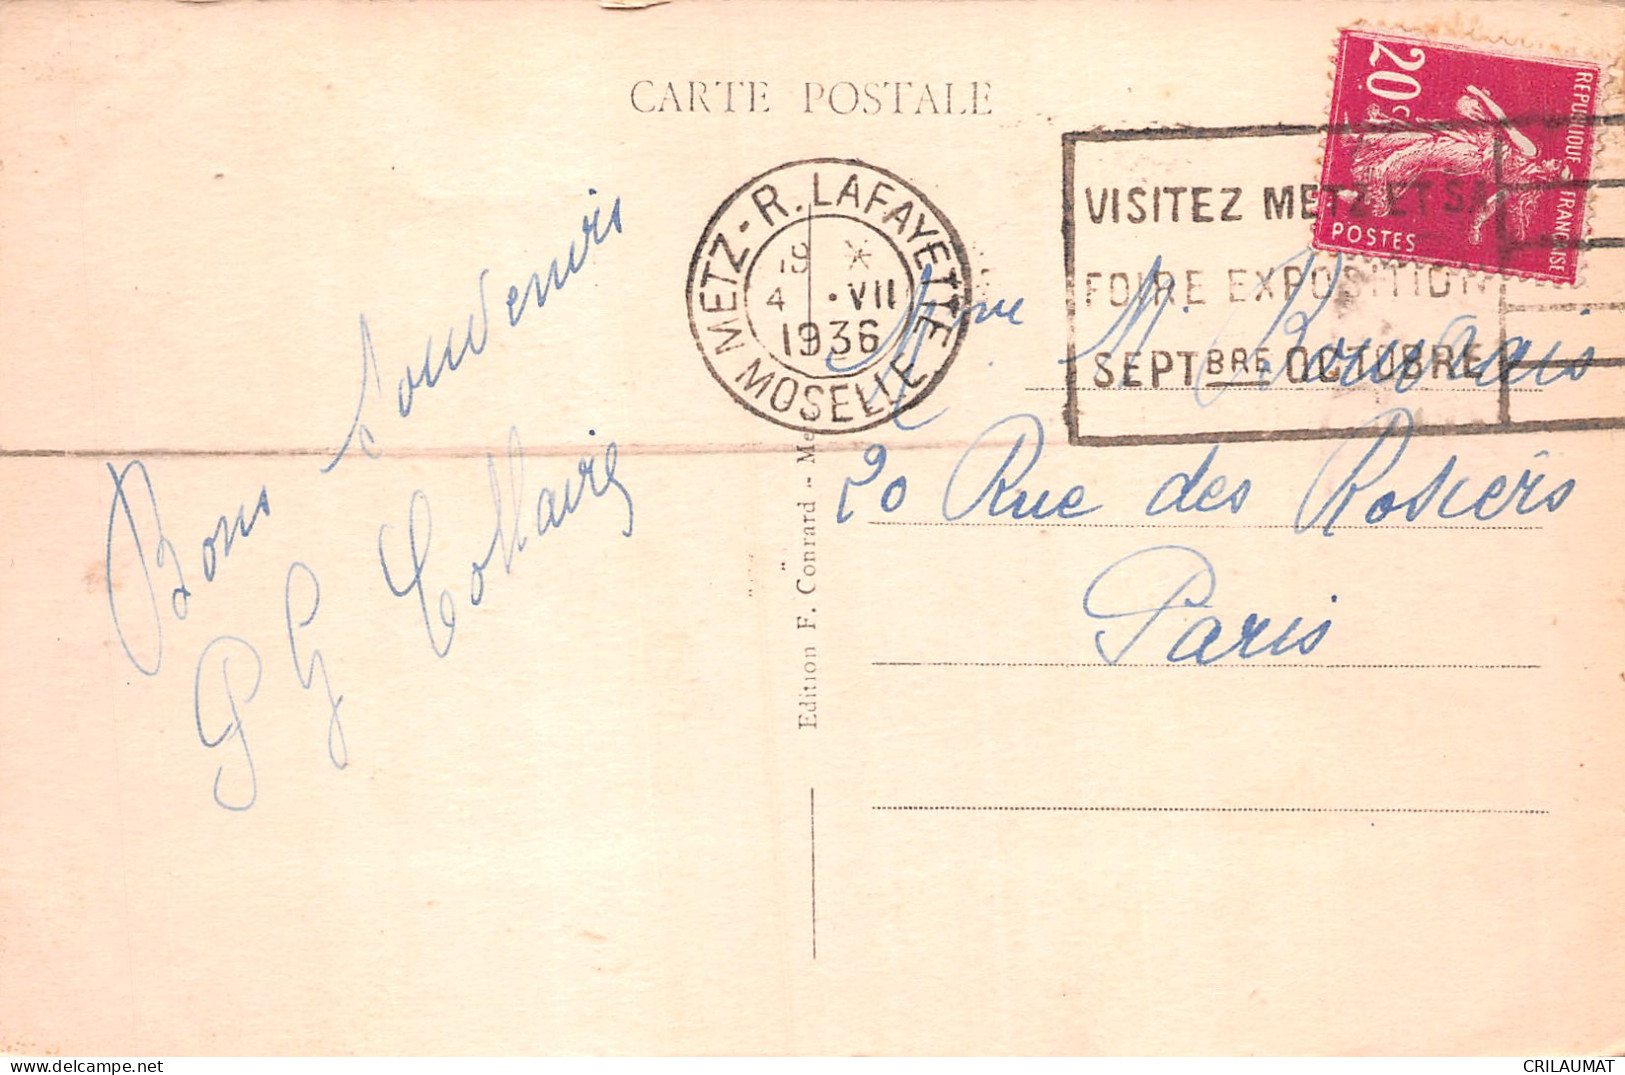 CARTE POSTALE
20c
REPUBLIQUE FRANÇAISE
POSTES
METZ - R. LAFAYETTE
19 *
4 • VII
1936
MOSELLE
VISITEZ METZ ET SA
FOIRE EXPOSITION
SEPTBRE OCTOBRE
Bons Souvenirs
P G Collaire
Mme M.
20 Rue des Rosiers
Paris
Edition F. Conrard -- Me
CRILAUMAT